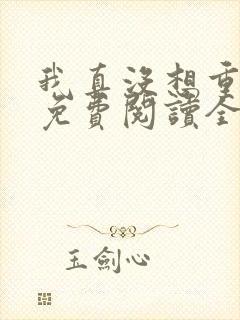 我真没想重
免費閱讀全
玉劍心